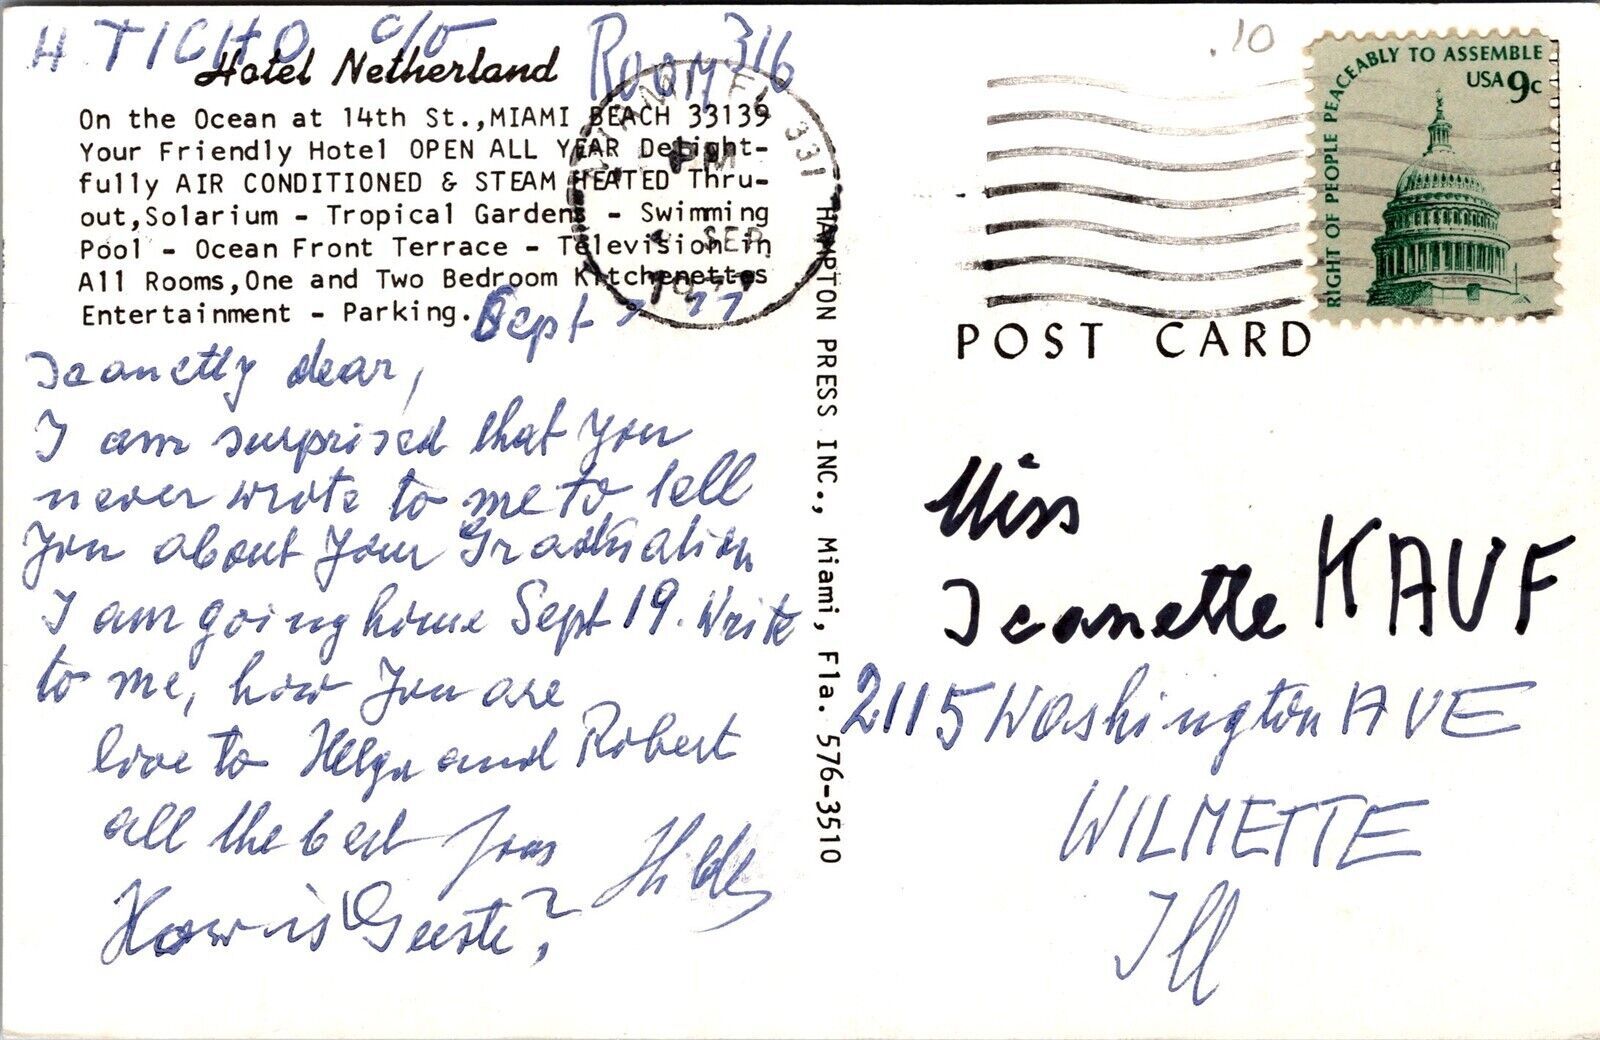 H TICHO c/o Room 316
Hotel Netherland
On the Ocean at 14th St., MIAMI BEACH 33139
Your Friendly Hotel OPEN ALL YEAR Delight-
fully AIR CONDITIONED & STEAM HEATED Thru-
out, Solarium - Tropical Gardens - Swimming
Pool - Ocean Front Terrace - Television in
All Rooms, One and Two Bedroom Kitchenettes
Entertainment - Parking.
Sept 7 77
Jeanetty dear,
I am surprised that you
never wrote to me to tell
you about your Graduation
I am going home Sept 19. Write
to me, how you are
love to Helga and Robert
all the best your
Hilde
How is Gerste?
HAMPTON PRESS INC., Miami, Fla. 576-3510
MIAMI, FL 331
PM
SEP
1977
.10
RIGHT OF PEOPLE PEACEABLY TO ASSEMBLE
USA 9c
POST CARD
Miss
Jeanette KAUF
2115 Washington AVE
WILMETTE
Ill